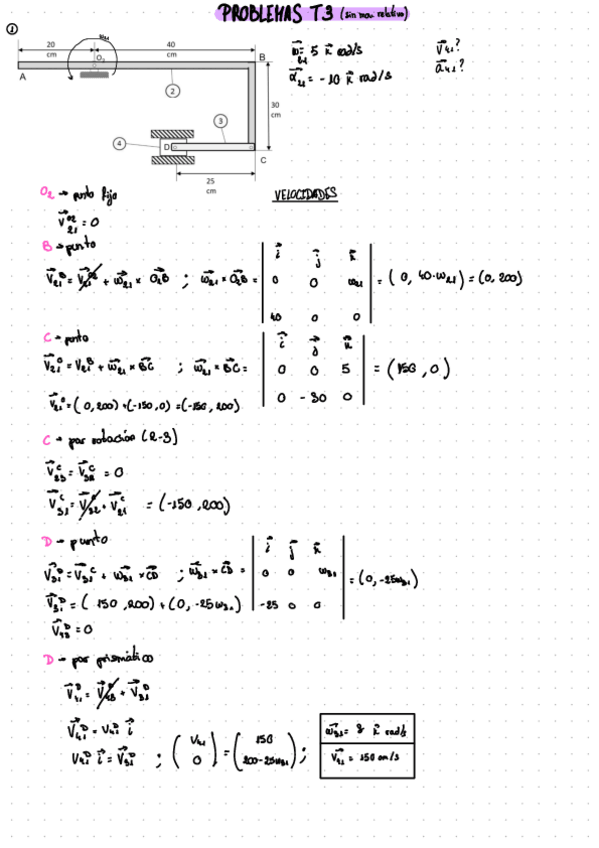 PROBLEMAS T3 (sin mov relativo)
①
20 cm
40 cm
ω21
O2
B
A
2
30 cm
3
4
D
C
25 cm
ω⃗21 = 5 k⃗ rad/s
α⃗21 = -10 k⃗ rad/s
v⃗41?
a⃗41?
O2 → punto fijo
VELOCIDADES
V⃗21^O2 = 0
B → punto
V⃗21^B = V⃗21^O2 + ω⃗21 × O2B ; ω⃗21 × O2B = | i⃗ j⃗ k⃗ | = (0, 40·ω21) = (0, 200)
0 0 ω21
40 0 0
C → punto
V⃗21^C = V21^B + ω⃗21 × BC ; ω⃗21 × BC = | i⃗ j⃗ k⃗ | = (150, 0)
0 0 5
0 -30 0
V⃗21^C = (0, 200) + (-150, 0) = (-150, 200)
C → par rotación (2-3)
V⃗23^C = V⃗32^C = 0
V⃗31^C = V⃗32^C + V⃗21^C = (-150, 200)
D → punto
V⃗31^D = V⃗31^C + ω⃗31 × CD ; ω⃗31 × CD = | i⃗ j⃗ k⃗ | = (0, -25ω31)
0 0 ω31
-25 0 0
V⃗31^D = ( 150, 200) + (0, -25ω31)
V⃗43^D = 0
D → par prismático
V⃗41^D = V⃗43^D + V⃗31^D
V⃗41^D = V41^D i⃗
V41^D i⃗ = V⃗31^D ; ( V41 0 ) = ( 150 200-25ω31 ) ;
ω⃗31 = 8 k⃗ rad/s
V⃗41 = 150 cm/s